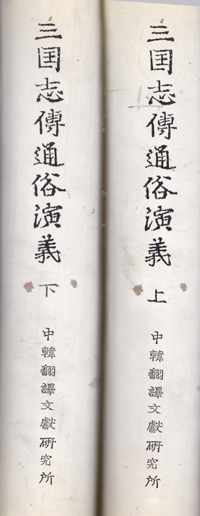 三国志傳通俗演義
上
中韓翻譯文獻研究所
三国志傳通俗演義
下
中韓翻譯文獻研究所